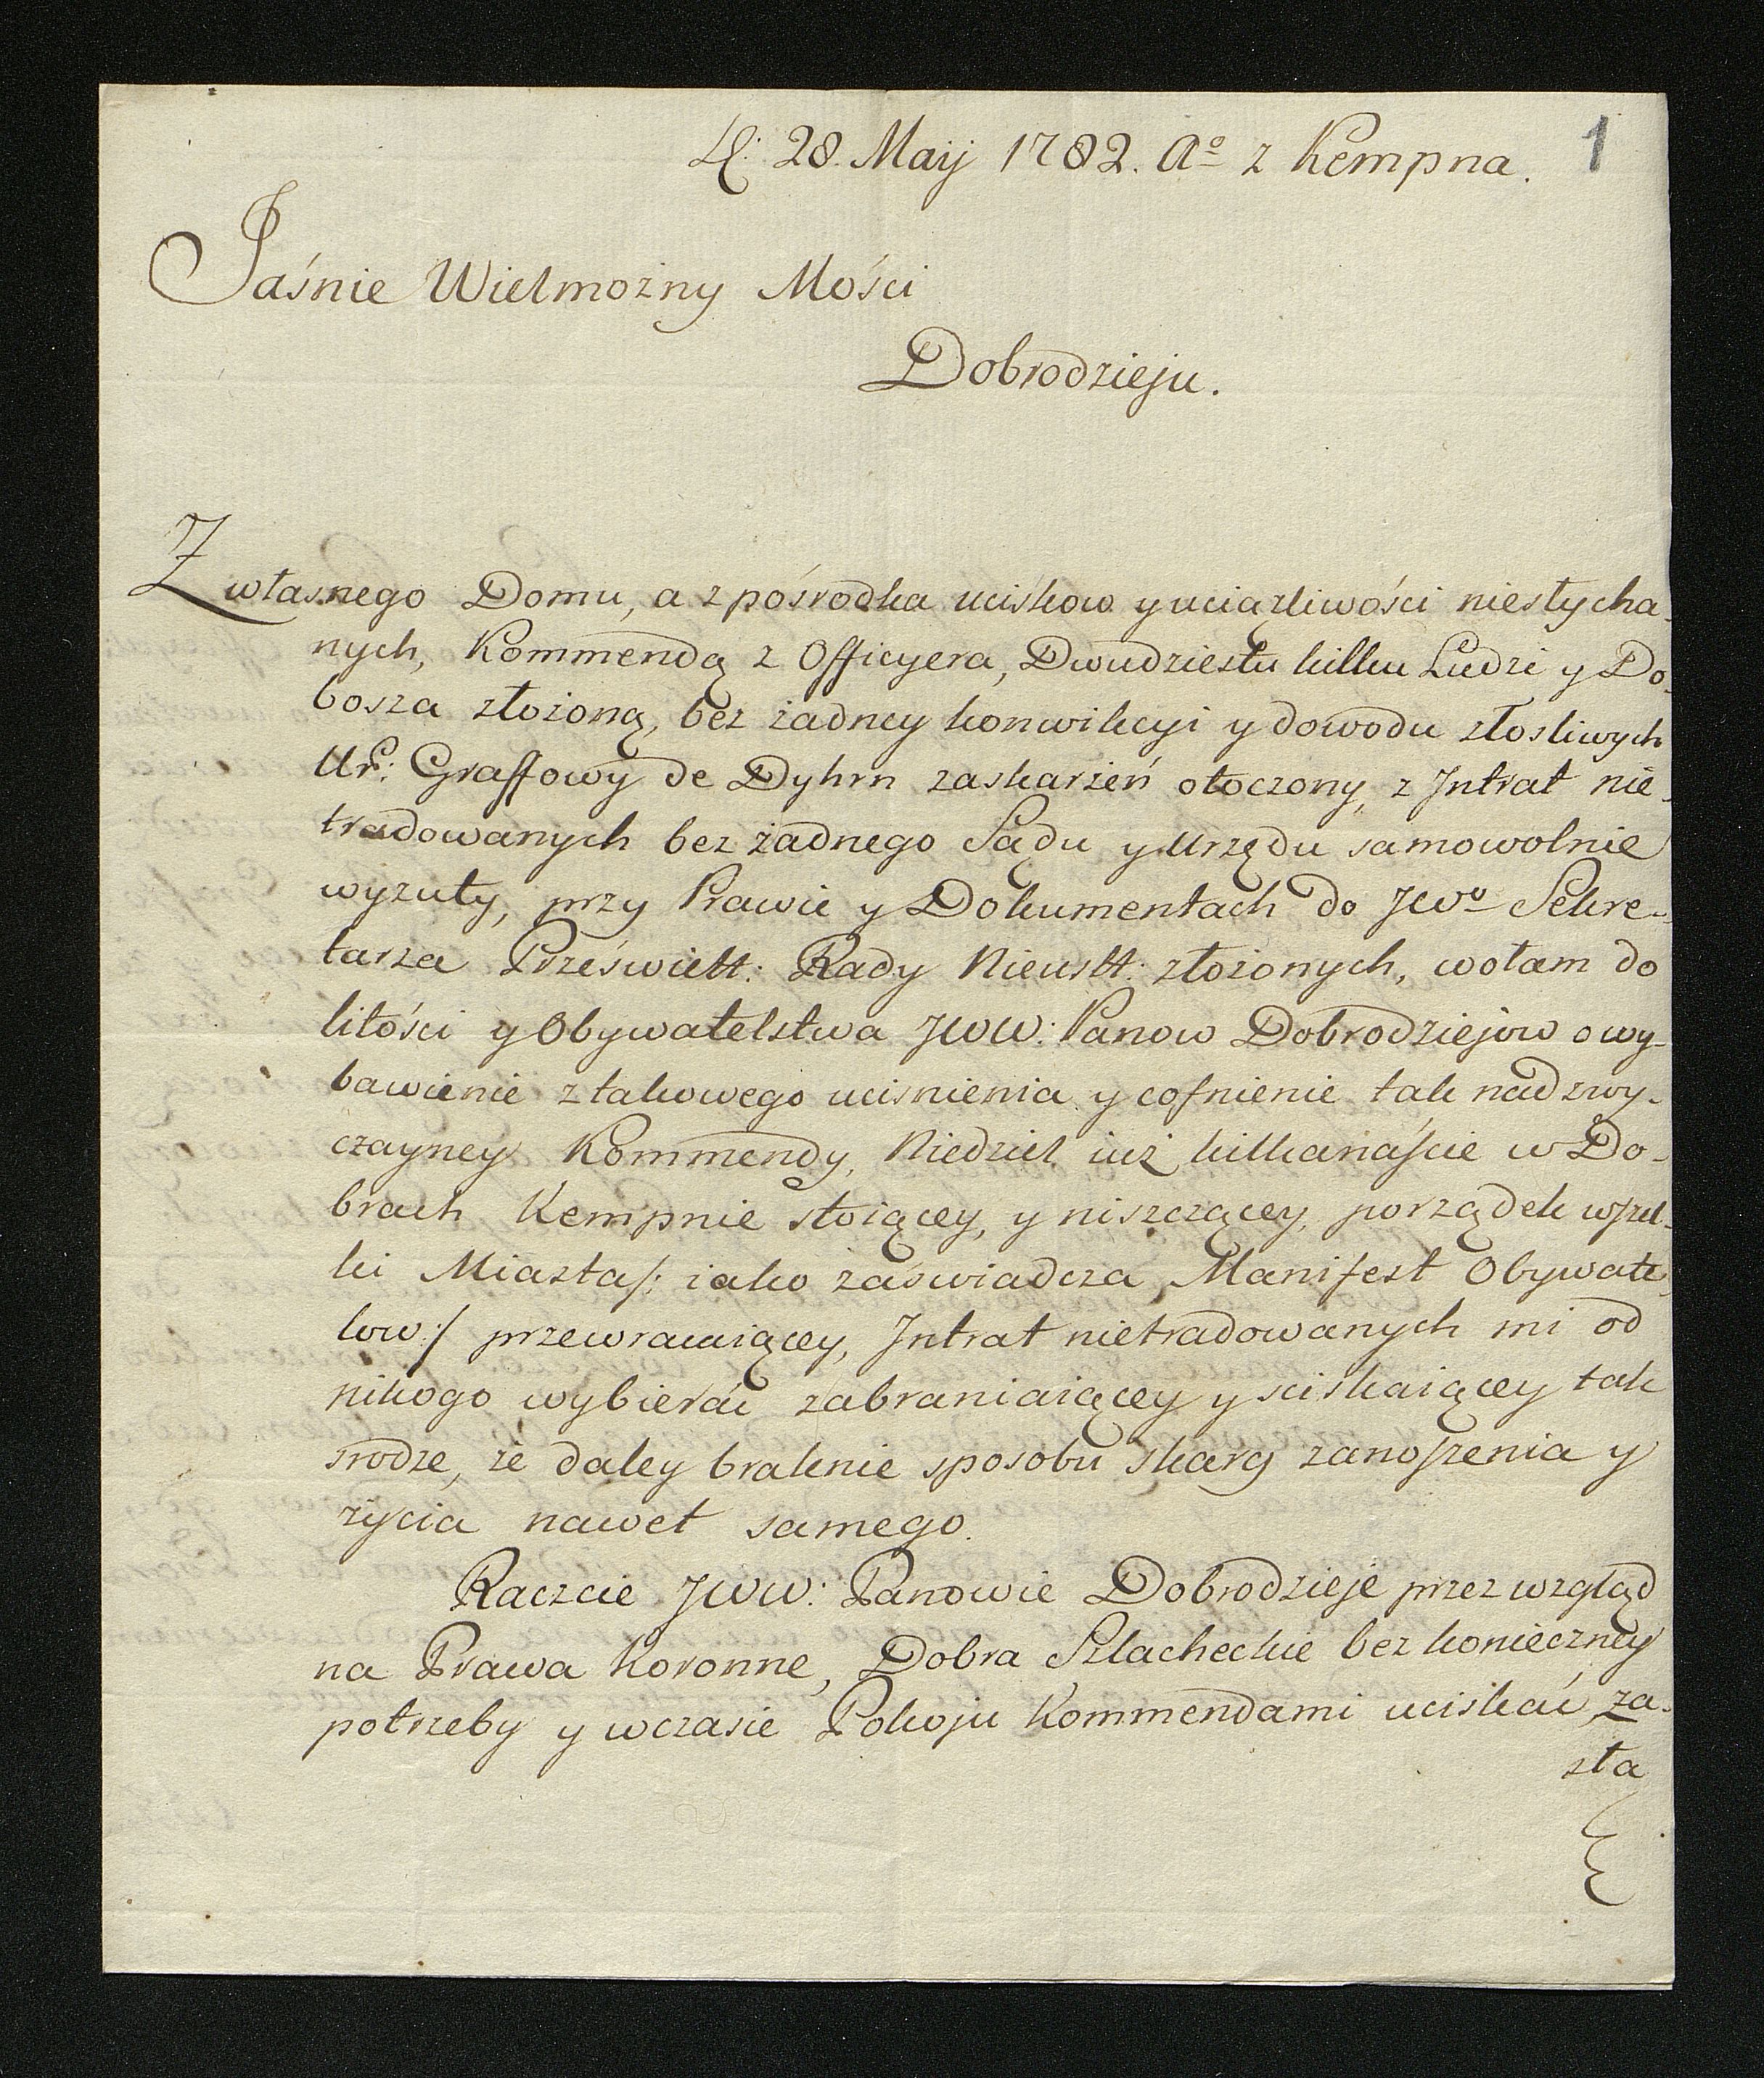 D: 28. Maij 1782. Ao z Kempna. 1
Jaśnie Wielmożny Mości
Dobrodzieju.
Z własnego Domu, a z pośrodka uciskow y uciążliwości niesłycha-
nych, Kommendą z Officyera, Dwudziestu kilku Ludzi y Do-
bosza złożoną, bez żadney konwikcyi y dowodu złosliwych
Ur: Graffowy de Dyhrn zaskarżeń otoczony, z Jntrat nie-
tradowanych bez żadnego Sądu y Urzędu samowolnie
wyzuty, przy Prawie y Dokumentach do JWo Sekre-
tarza Przeświett: Rady Nieustt: złożonych, wołam do
litości y Obywatelstwa JWW: Panow Dobrodziejow o wy-
bawienie z takowego ucisnienia y cofnienie tak nadzwy-
czayney Kommendy, Niedziel iuż kilkanaście w Do-
brach Kempnie stoiącey, y niszczącey, porządek wszel-
ki Miasta /: iako zaświadcza Manifest Obywate-
low :/ przewracaiącey, Jntrat nietradowanych mi od
nikogo wybierać zabraniaiącey y sciskaiącey tak
srodze, że daley braknie sposobu skarg zanoszenia y
życia nawet samego.
Raczcie JWW: Panowie Dobrodzieje przez wzgląd
na Prawa Koronne, Dobra Szlacheckie bez konieczney
potrzeby y w czasie Pokoju Kommendami uciskać, za-
sta